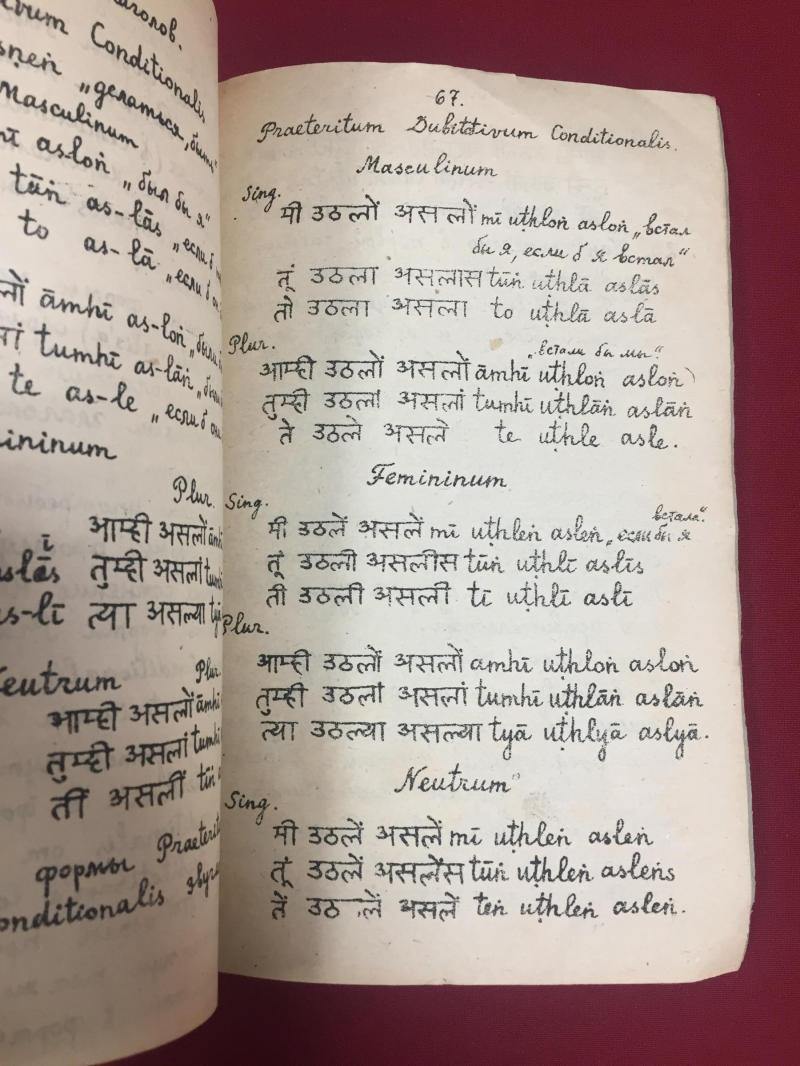 иvum Conditionalis
„делаться, быть“
Masculinum
asloṅ „был бы я“
tūṅ as-lās „если б
to as-lā „если б
āmhī as-loṅ „были
tumhī as-lāṅ
te as-le „если б они
Plur.
आम्ही असलों
तुम्ही असलां
as-lī त्या असल्या tyā
Neutrum Plur.
आम्ही असलों āmhī
तुम्ही असलां tumhī
तीं असलीं
формы Praeterit
onditionalis
67.
Praeteritum Dubitativum Conditionalis.
Masculinum
Sing.
मी उठलों असलों mī uṭhloṅ asloṅ „встал
бы я, если б я встал“
तूं उठला असलास tūṅ uṭhlā aslās
तो उठला असला to uṭhlā aslā
Plur.
„встали бы мы“
आम्ही उठलों असलों āmhī uṭhloṅ asloṅ
तुम्ही उठलां असलां tumhī uṭhlāṅ aslāṅ
ते उठले असले te uṭhle asle.
Femininum
Sing.
встала“
मी उठलें असलें mī uṭhleṅ asleṅ „если бы я
तूं उठली असलीस tūṅ uṭhlī aslīs
ती उठली असली tī uṭhlī aslī
Plur.
आम्ही उठलों असलों amhī uṭhloṅ asloṅ
तुम्ही उठलां असलां tumhī uṭhlāṅ aslāṅ
त्या उठल्या असल्या tyā uṭhlyā aslyā.
Neutrum
Sing.
मी उठलें असलें mī uṭhleṅ asleṅ
तूं उठलें असलेंस tūṅ uṭhleṅ asleṅs
तें उठलें असलें teṅ uṭhleṅ asleṅ.